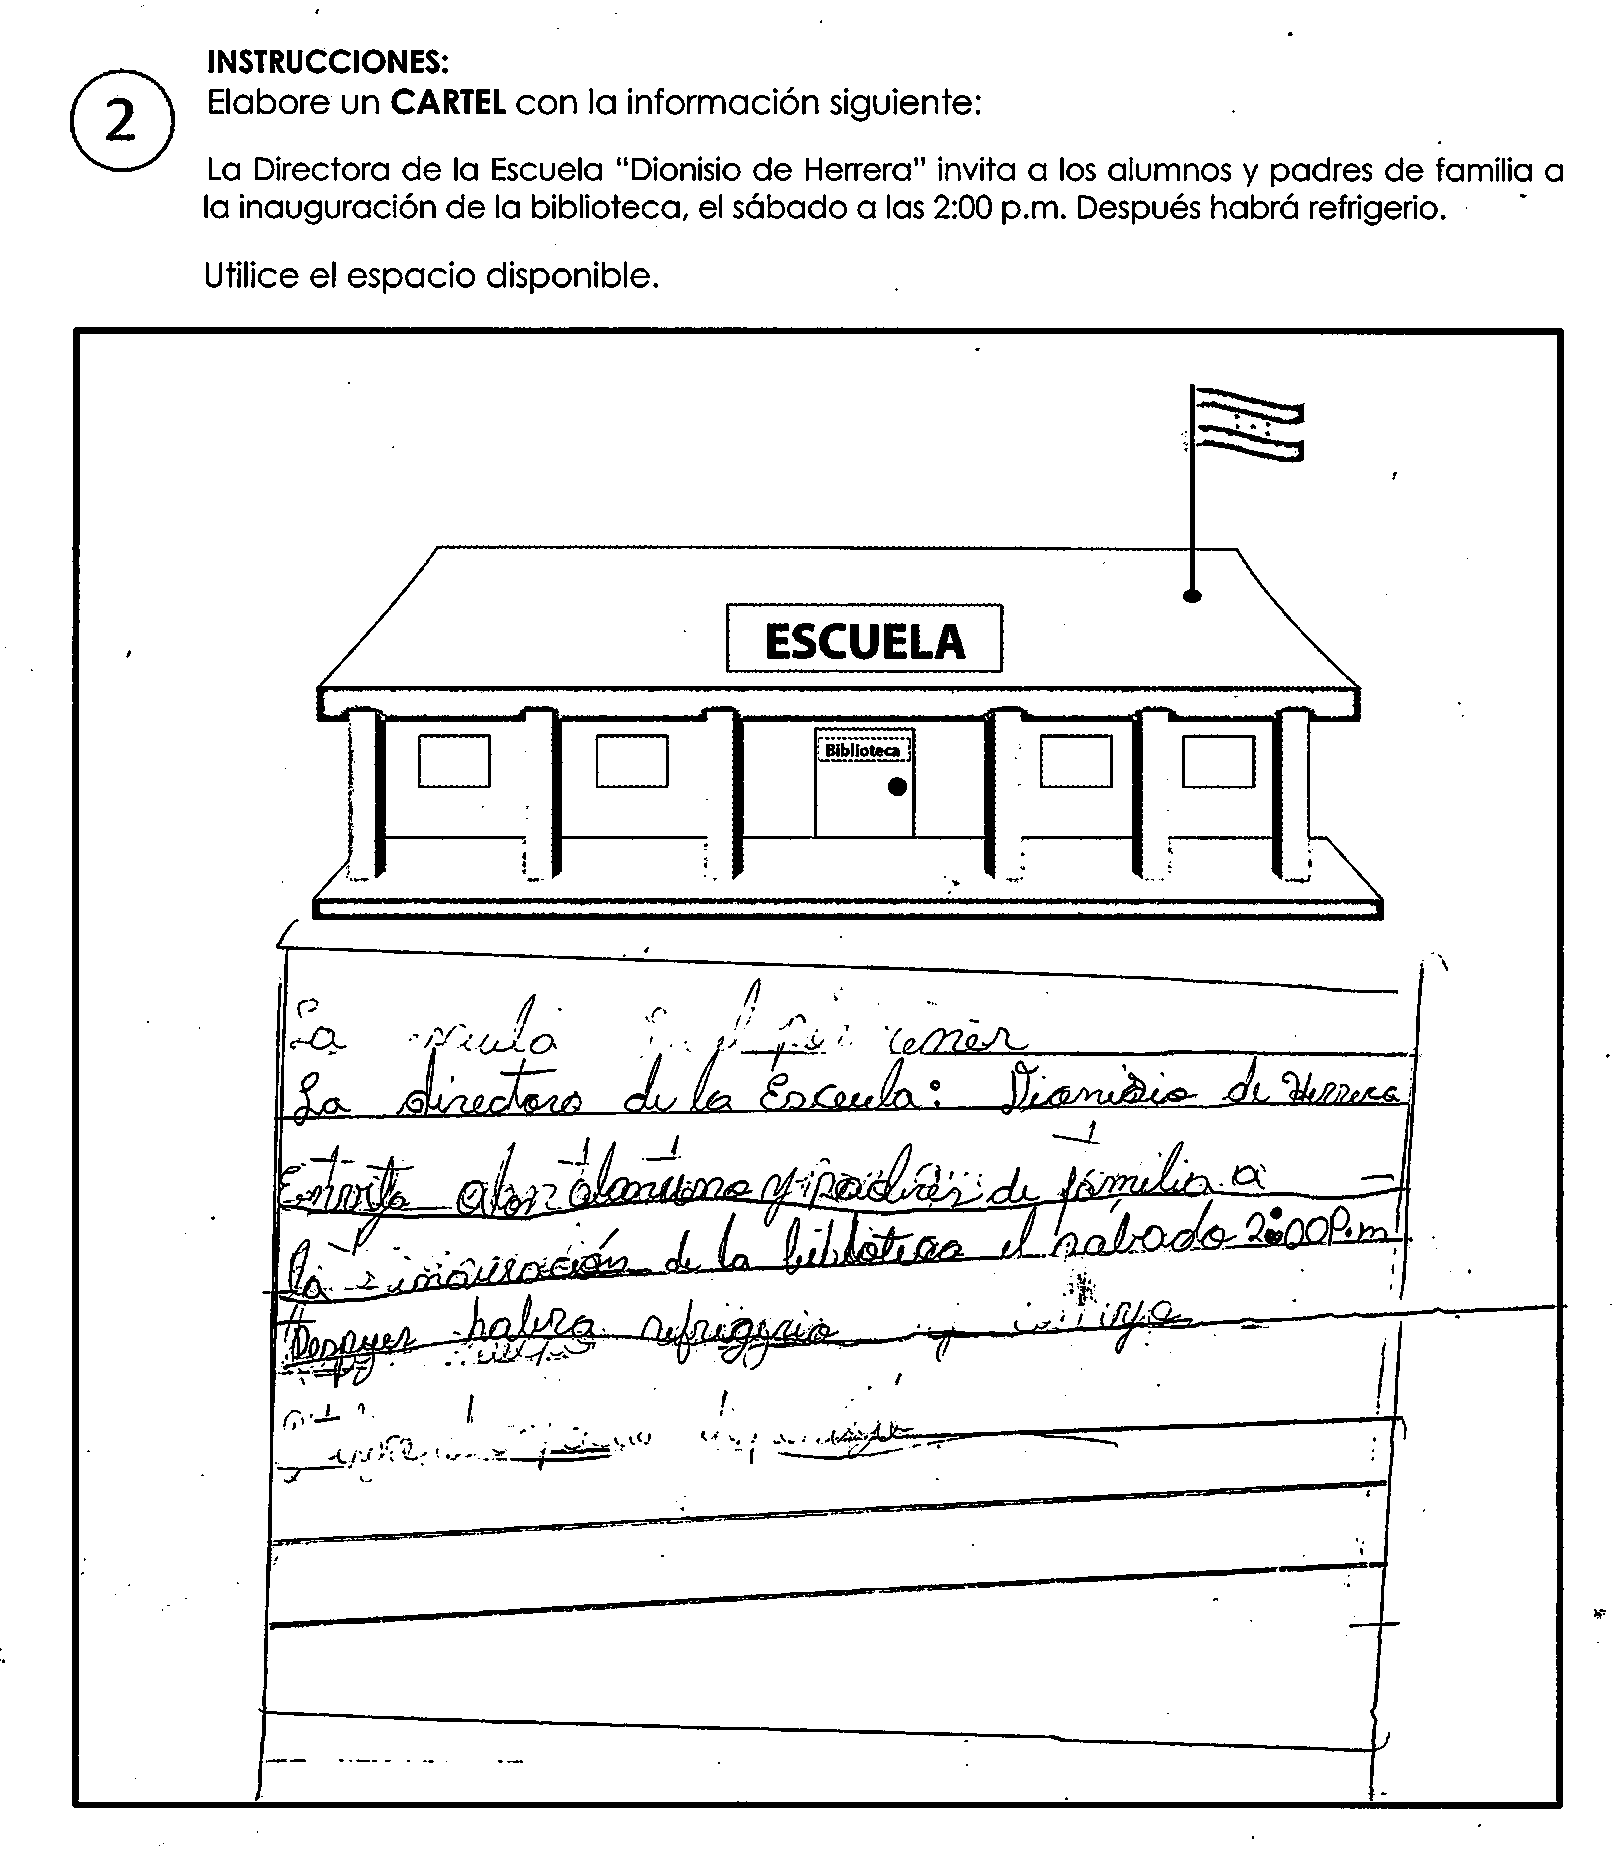 INSTRUCCIONES:
2
Elabore un CARTEL con la información siguiente:
La Directora de la Escuela "Dionisio de Herrera" invita a los alumnos y padres de familia a
la inauguración de la biblioteca, el sábado a las 2:00 p.m. Después habrá refrigerio.
Utilice el espacio disponible.
ESCUELA
Biblioteca
La
La directora de la Escuela: Dionisio de Herrera
y padres de familia a
la de la biblioteca el sabado 2:00 P.m
habra